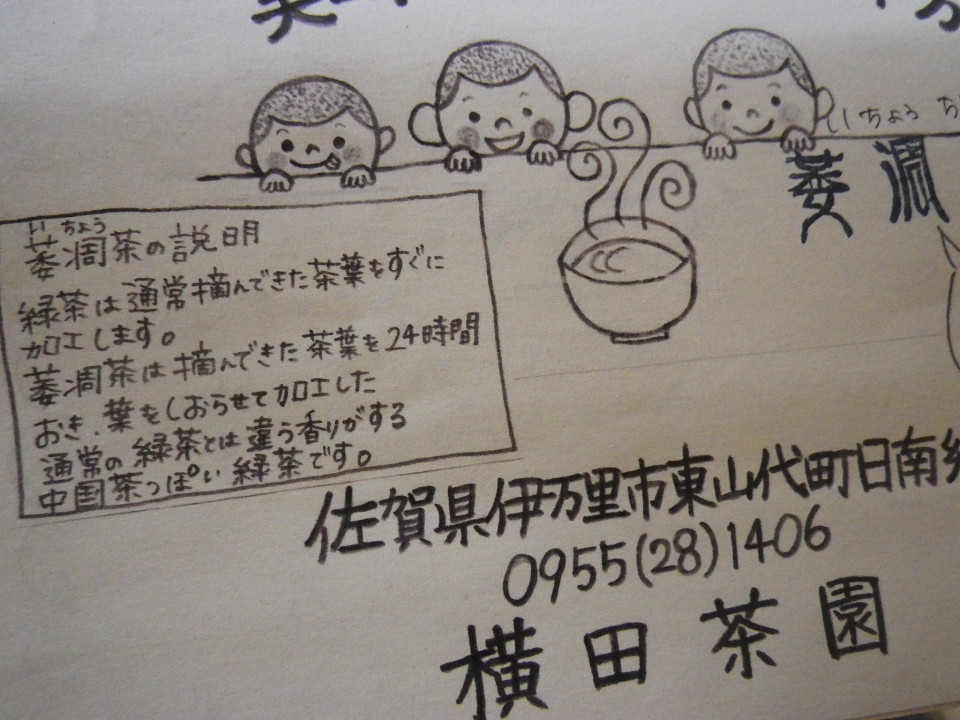 いちょう ち
萎凋
いちょう
萎凋茶の説明
緑茶は通常摘んできた茶葉をすぐに
加工します。
萎凋茶は摘んできた茶葉を24時間
おき、葉をしおらせて加工した
通常の緑茶とは違う香りがする
中国茶っぽい緑茶です。
佐賀県伊万里市東山代町日南郷
0955(28)1406
横田茶園